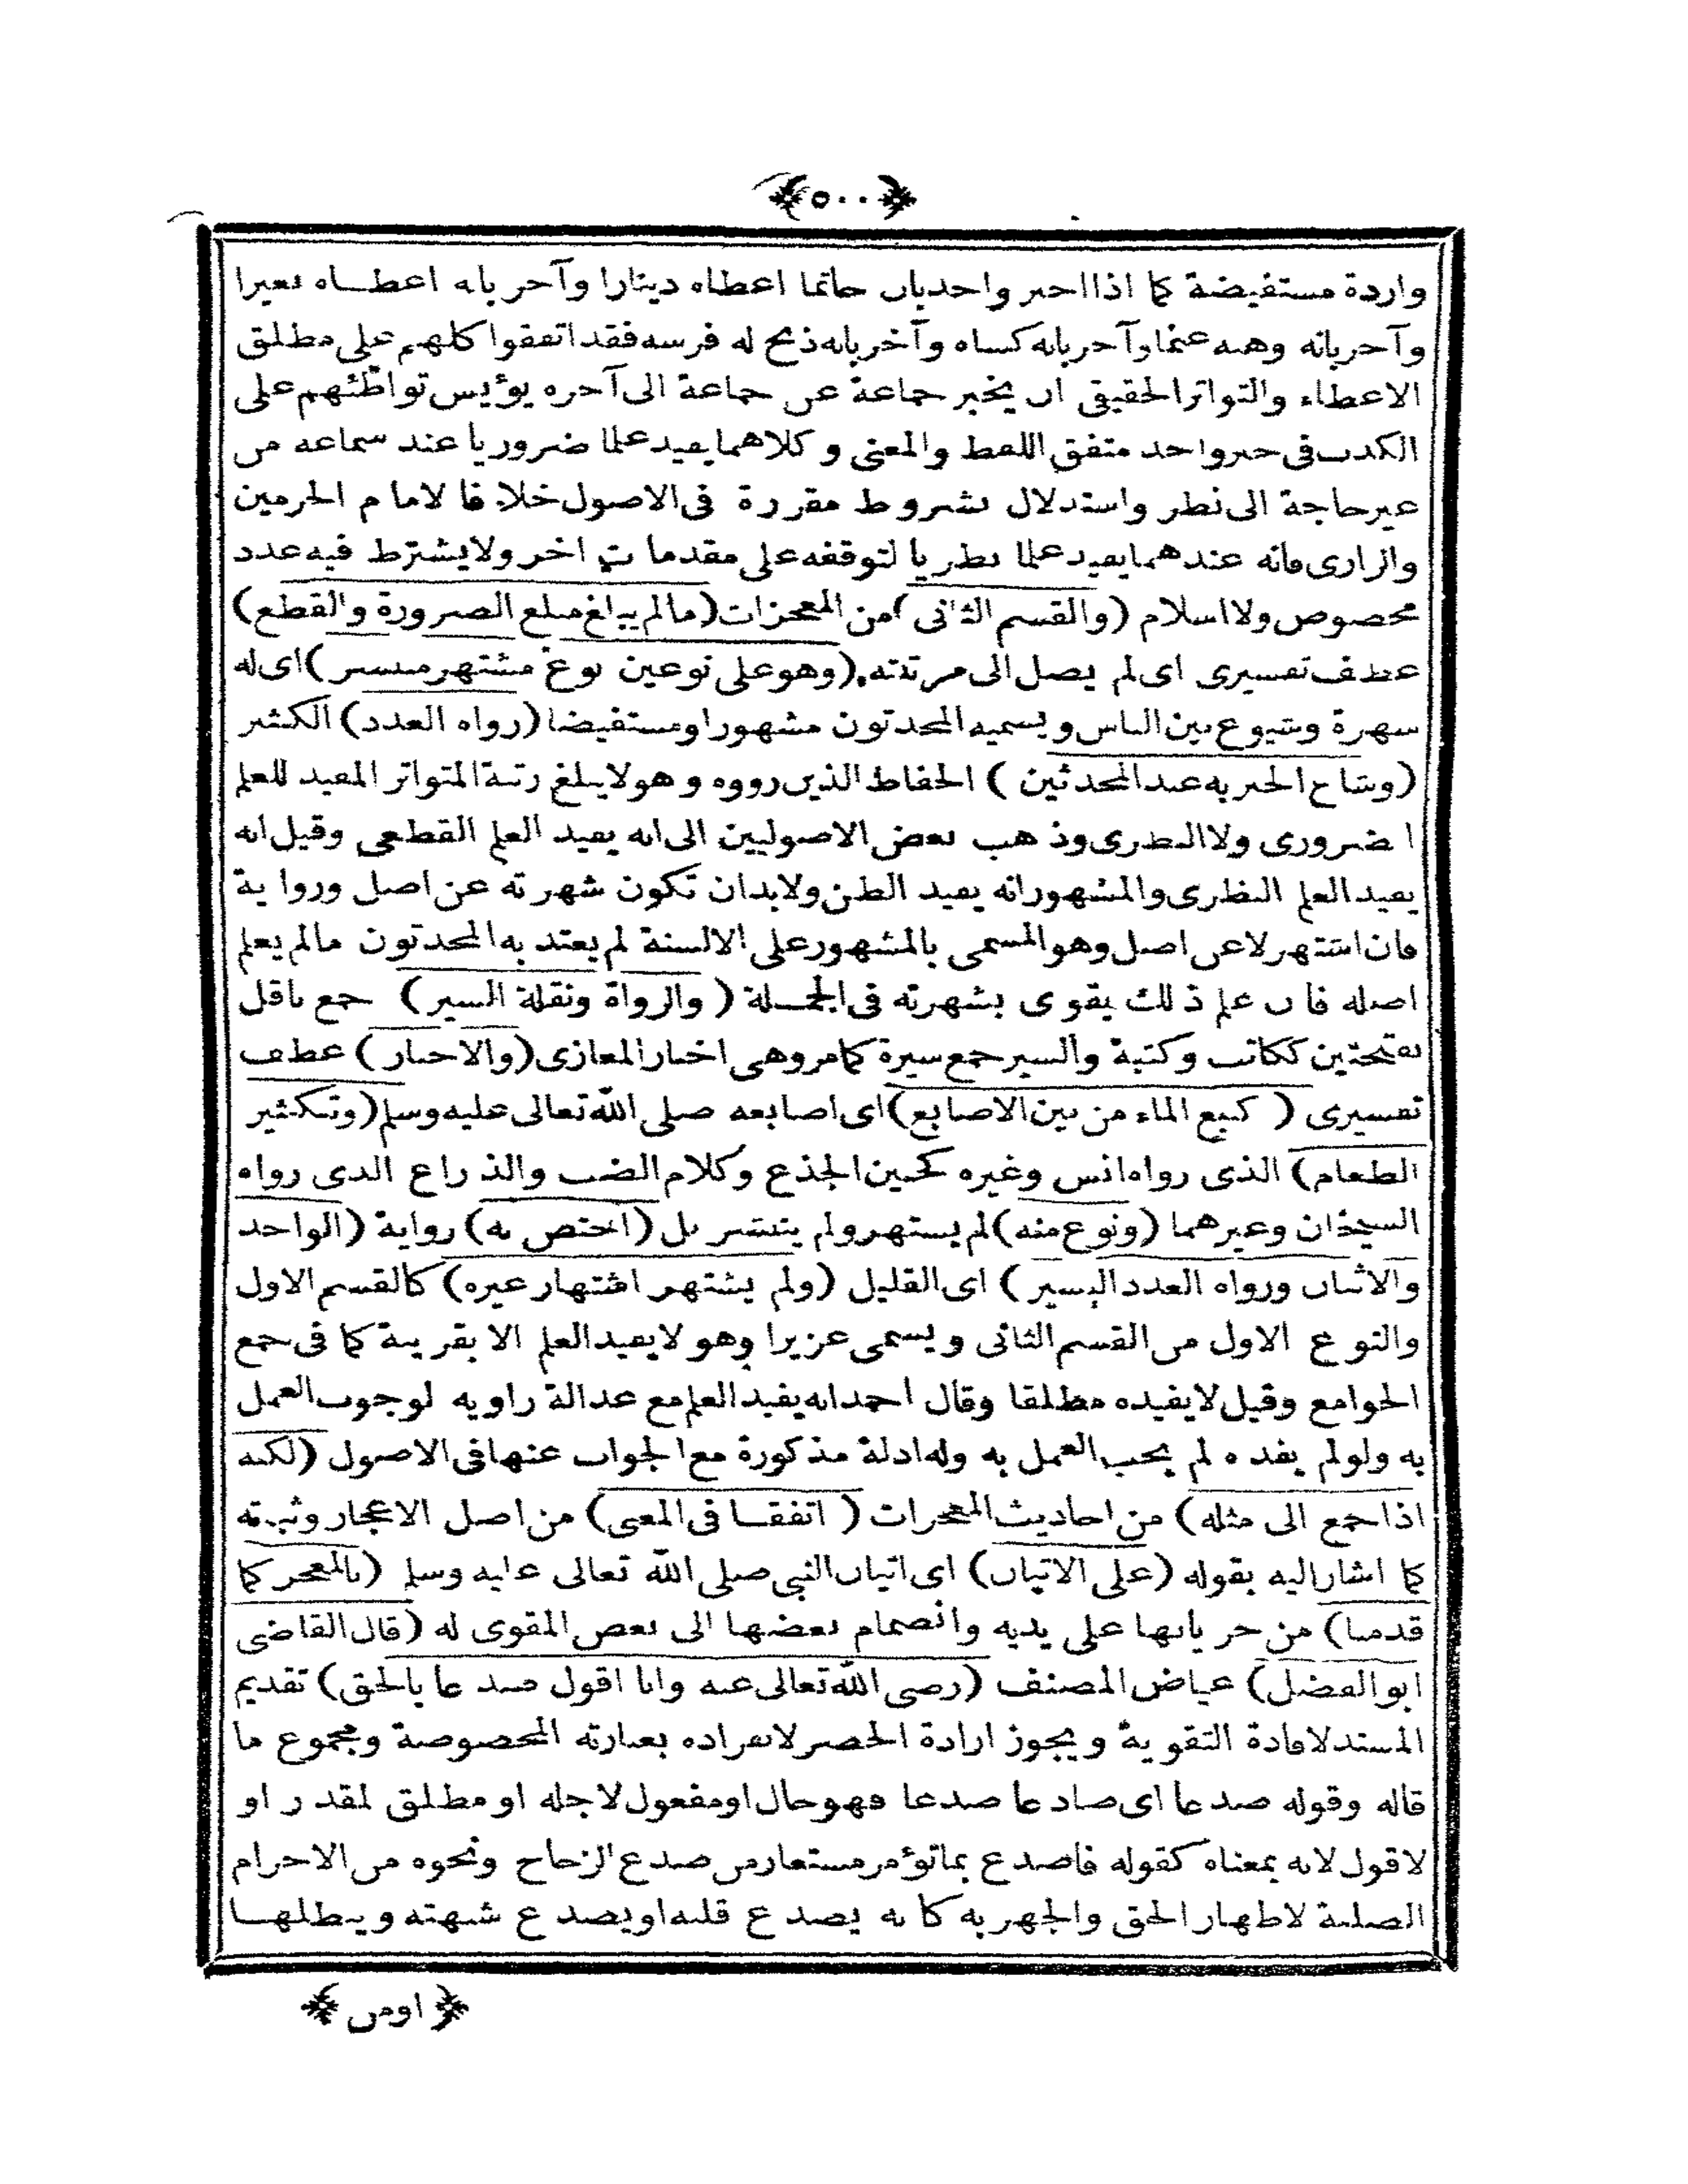 ﴿٥٠٠﴾
واردة مستفيضة كما اذا اخبر واحد بان حاتما اعطاه دينارا وآخر بانه اعطاه بعيرا
وآخر بانه وهبه غنما وآخر بانه كساه وآخر بانه ذبح له فرسه فقد اتفقوا كلهم على مطلق
الاعطاء والتواتر الحقيقى ان يخبر جماعة عن جماعة الى آخره يؤيس تواطئهم على
الكذب فى خبر واحد متفق اللفظ والمعنى وكلاهما يفيد علما ضروريا عند سماعه من
غير حاجة الى نظر واستدلال بشروط مقررة فى الاصول خلافا لامام الحرمين
والرازى فانه عندهما يفيد علما نظريا لتوقفه على مقدمات اخر ولا يشترط فيه عدد
مخصوص ولا اسلام (والقسم الثانى) من المعجزات (مالم يبلغ مبلغ الضرورة والقطع)
عطف تفسيرى اى لم يصل الى مرتبته (وهو على نوعين نوع مشتهر منتشر) اى له
شهرة وشيوع بين الناس ويسميه المحدثون مشهورا ومستفيضا (رواه العدد) الكثير
(وشاع الخبر به عند المحدثين) الحفاظ الذين رووه وهو لا يبلغ رتبة المتواتر المفيد للعلم
الضرورى ولا النظرى وذهب بعض الاصوليين الى انه يفيد العلم القطعى وقيل انه
يفيد العلم النظرى والمشهور انه يفيد الظن ولابد ان تكون شهرته عن اصل ورواية
فان اشتهر لا عن اصل وهو المسمى بالمشهور على الالسنة لم يعتد به المحدثون مالم يعلم
اصله فان علم ذلك يقوى بشهرته فى الجملة (والرواة ونقلة السير) جمع ناقل
بفتحتين ككاتب وكتبة والسير جمع سيرة كما مر وهى اخبار المغازى (والاخبار) عطف
تفسيرى (كنبع الماء من بين الاصابع) اى اصابعه صلى الله تعالى عليه وسلم (وتكثير
الطعام) الذى رواه انس وغيره كحنين الجذع وكلام الضب والذراع الذى رواه
الشيخان وغيرهما (ونوع منه) لم يشتهر ولم ينتشر بل (اختص به) رواية (الواحد
والاثنان ورواه العدد اليسير) اى القليل (ولم يشتهر اشتهار غيره) كالقسم الاول
والنوع الاول من القسم الثانى ويسمى عزيزا وهو لا يفيد العلم الا بقرينة كما فى جمع
الجوامع وقيل لا يفيده مطلقا وقال احمد انه يفيد العلم مع عدالة راويه لوجوب العمل
به ولو لم يفده لم يجب العمل به وله ادلة مذكورة مع الجواب عنها فى الاصول (لكنه
اذا جمع الى مثله) من احاديث المعجزات (اتفقا فى المعنى) من اصل الاعجاز وثبوته
كما اشار اليه بقوله (على الاتيان) اى اتيان النبى صلى الله تعالى عليه وسلم (بالمعجز كما
قدمنا) من جريانها على يديه وانضمام بعضها الى بعض المقوى له (قال القاضى
ابو الفضل) عياض المصنف (رضى الله تعالى عنه وانا اقول صدعا بالحق) تقديم
المسند لافادة التقوية ويجوز ارادة الحصر لانفراده بعبارته المخصوصة ومجموع ما
قاله وقوله صدعا اى صادعا صدعا فهو حال او مفعول لاجله او مطلق لمقدر او
لاقول لانه بمعناه كقوله فاصدع بما تؤمر مستعار من صدع الزجاج ونحوه من الاجرام
الصلبة لاظهار الحق والجهر به كانه يصدع قلبه او يصدع شبهته ويبطلها
﴿اومن﴾